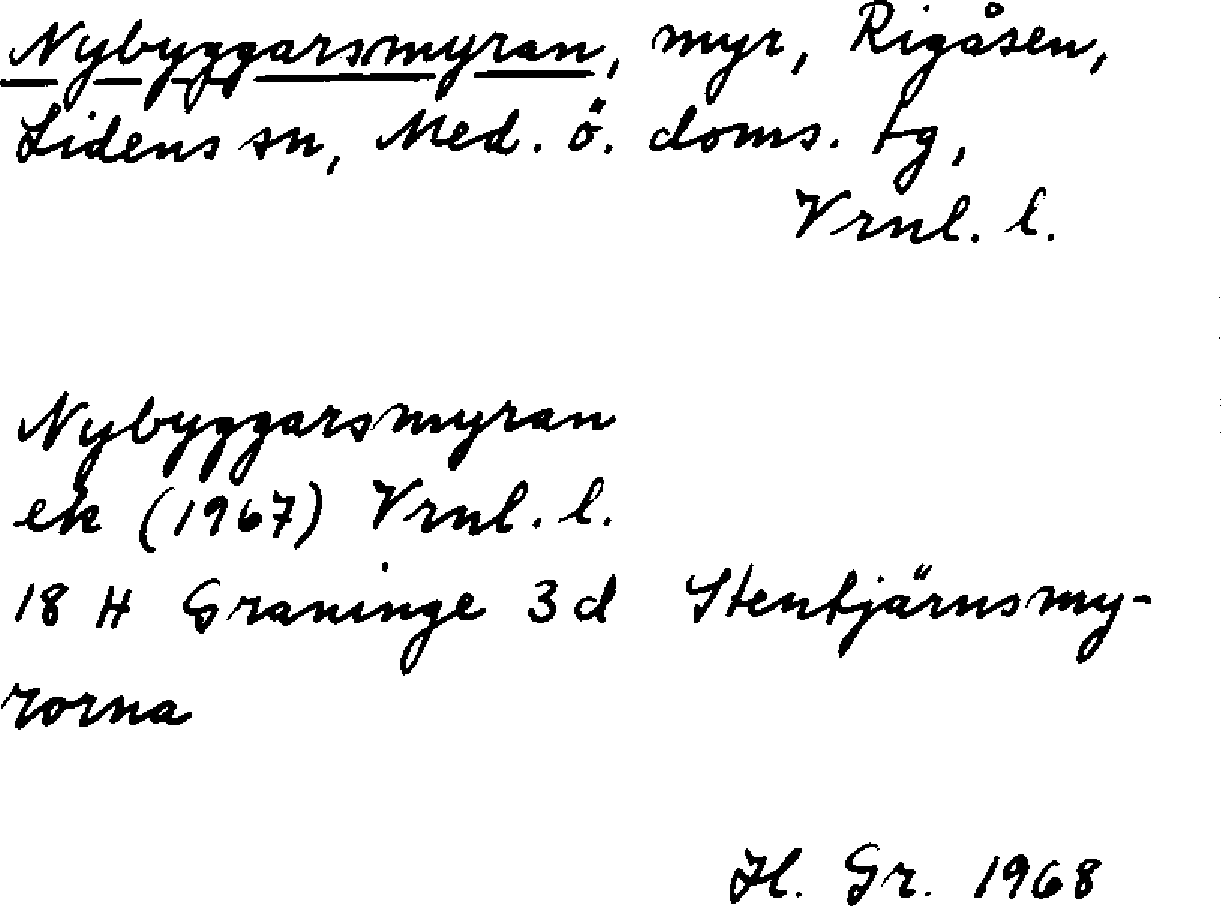 Nybyggarsmyran, myr, Rigåsen,
Lidens sn, Med. ö. doms. tg,
Vrnl. l.
Nybyggarsmyran
ek (1967) Vrnl. l.
18 H Graninge 3d Stentjärnsmy-
rorna
H. Gr. 1968